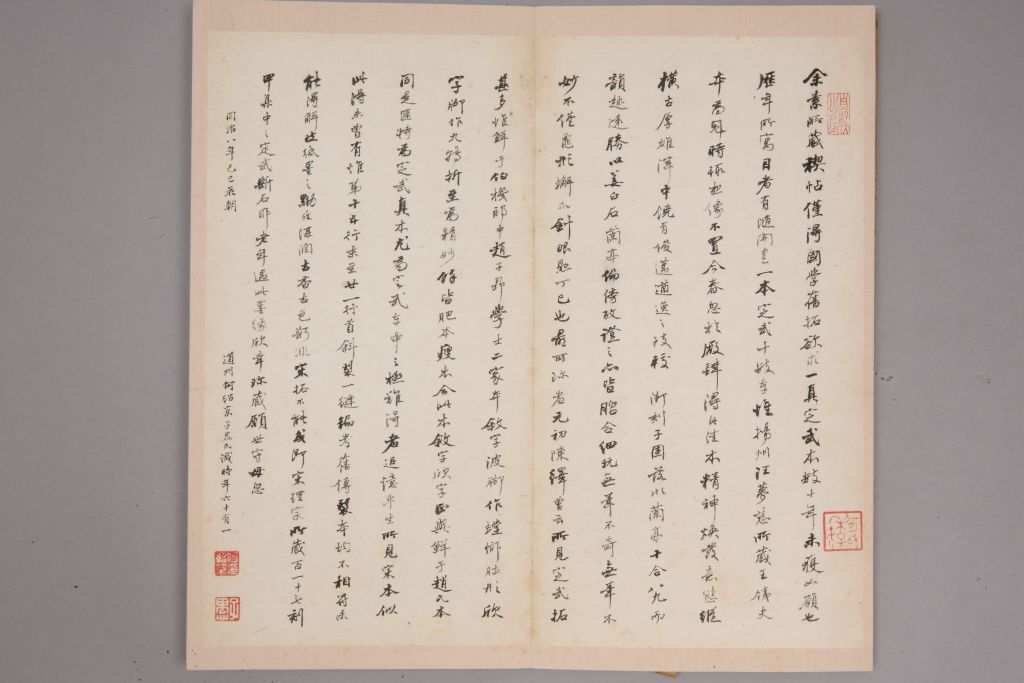 余素所藏稧帖僅得國學舊拓欲求一真定武本數十年未獲如願也
歷年所寓目者有隨開皇一本定武十數本惟揚州汪夢慈所藏王儀夫
本為冠時極想像不置今春忽於廠肆得此佳本精神煥發意態縱
橫古厚雄渾中饒有俊邁遒逸之致較 淅刻子固落水蘭亭十合八九而
韻趣遠勝以姜白石蘭亭偏傍攷證之亦皆脗合細玩無筆不奇無筆不
妙不僅龜形蟹爪針眼懸丁已也最可珍者元初陳繹曾云所見定武拓
甚多惟鮮于伯機郎中趙子昂學士二家本敘字波腳作螳螂肚形欣
字腳作九轉折至為精妙餘皆肥本瘦本今此本敘字欣字正與鮮于趙氏本
同是匪特為定武真本尤為定武本中之極難得者追憶平生所見宋本似
此得未曾有惟第十五行末至廿一行首斜裂一縫徧考舊傳裂本均不相符未
能得解此紙墨之黝低湛潤古香古色斷非宋拓不能或即宋理宗所藏百一十七刻
甲集中之定武斷石耶老年遇此墨緣欣幸珍藏願世守毋忽
同治八年己巳花朝
道州何紹京子愚氏識時年六十有一